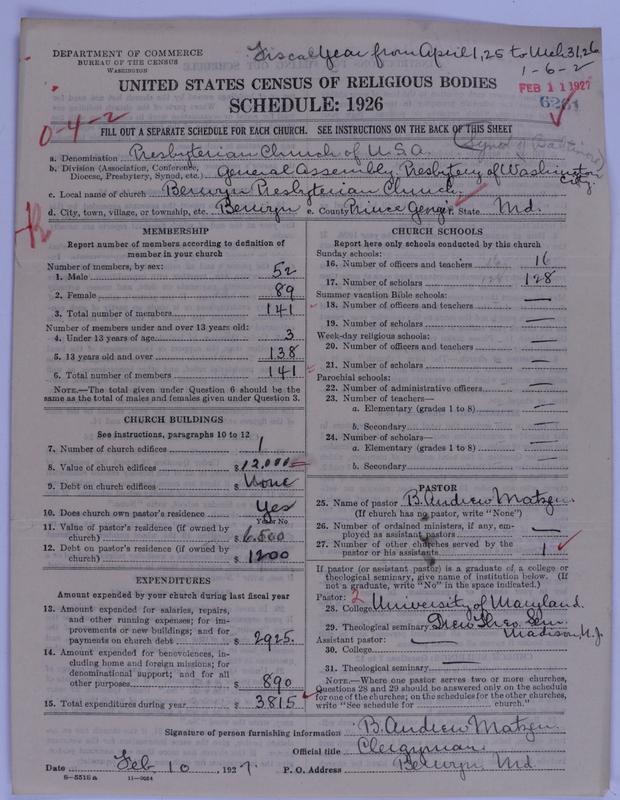 DEPARTMENT OF COMMERCE
BUREAU OF THE CENSUS
WASHINGTON
Fiscal Year from April 1, 25 to Mch 31, 26
1-6-2
FEB 11 1927
UNITED STATES CENSUS OF RELIGIOUS BODIES
SCHEDULE: 1926
0-4-2
FILL OUT A SEPARATE SCHEDULE FOR EACH CHURCH. SEE INSTRUCTIONS ON THE BACK OF THIS SHEET
(Synod of Baltimore)
a. Denomination Presbyterian Church of U.S.A.
b. Division (Association, Conference, Diocese, Presbytery, Synod, etc.) General Assembly, Presbytery of Washington City.
c. Local name of church Berwyn Presbyterian Church.
d. City, town, village, or township, etc. Berwyn e. County Prince Geog. f. State Md.
MEMBERSHIP
Report number of members according to definition of
member in your church
Number of members, by sex:
1. Male 52
2. Female 89
3. Total number of members 141
Number of members under and over 13 years old:
4. Under 13 years of age 3
5. 13 years old and over 138
6. Total number of members 141
NOTE.—The total given under Question 6 should be
the same as the total of males and females given under Question 3.
CHURCH BUILDINGS
See instructions, paragraphs 10 to 12
7. Number of church edifices 1
8. Value of church edifices $12,000
9. Debt on church edifices $ None
10. Does church own pastor's residence? Yes
Yes or No
11. Value of pastor's residence (if owned by
church) $ 6,500
12. Debt on pastor's residence (if owned by
church) $ 1200
EXPENDITURES
Amount expended by your church during last fiscal year
13. Amount expended for salaries, repairs,
and other running expenses; for im-
provements or new buildings; and for
payments on church debt $ 2925.
14. Amount expended for benevolences, in-
cluding home and foreign missions; for
denominational support; and for all
other purposes $ 890
15. Total expenditures during year $ 3815
CHURCH SCHOOLS
Report here only schools conducted by this church
Sunday schools:
16. Number of officers and teachers 16 16
17. Number of scholars 128 128
Summer vacation Bible schools:
18. Number of officers and teachers —
19. Number of scholars —
Week-day religious schools:
20. Number of officers and teachers —
21. Number of scholars —
Parochial schools:
22. Number of administrative officers —
23. Number of teachers—
a. Elementary (grades 1 to 8) —
b. Secondary —
24. Number of scholars—
a. Elementary (grades 1 to 8) —
b. Secondary —
PASTOR
25. Name of pastor B. Andrew Matzen
(If church has no pastor, write "None")
26. Number of ordained ministers, if any, em-
ployed as assistant pastors —
27. Number of other churches served by the
pastor or his assistants 1
If pastor (or assistant pastor) is a graduate of a college or
theological seminary, give name of institution below. (If
not a graduate, write "No" in the space indicated.)
Pastor: 2
28. College University of Maryland.
29. Theological seminary Drew Theo. Sem. Madison, N.J.
Assistant pastor:
30. College —
31. Theological seminary —
NOTE.—Where one pastor serves two or more churches,
Questions 28 and 29 should be answered only on the schedule
for one of the churches; on the schedules for the other churches,
write "See schedule for church."
Signature of person furnishing information B. Andrew Matzen
Official title Clergyman.
Date Feb 10, 1927. P. O. Address Berwyn Md.
8-5516a 11-9264